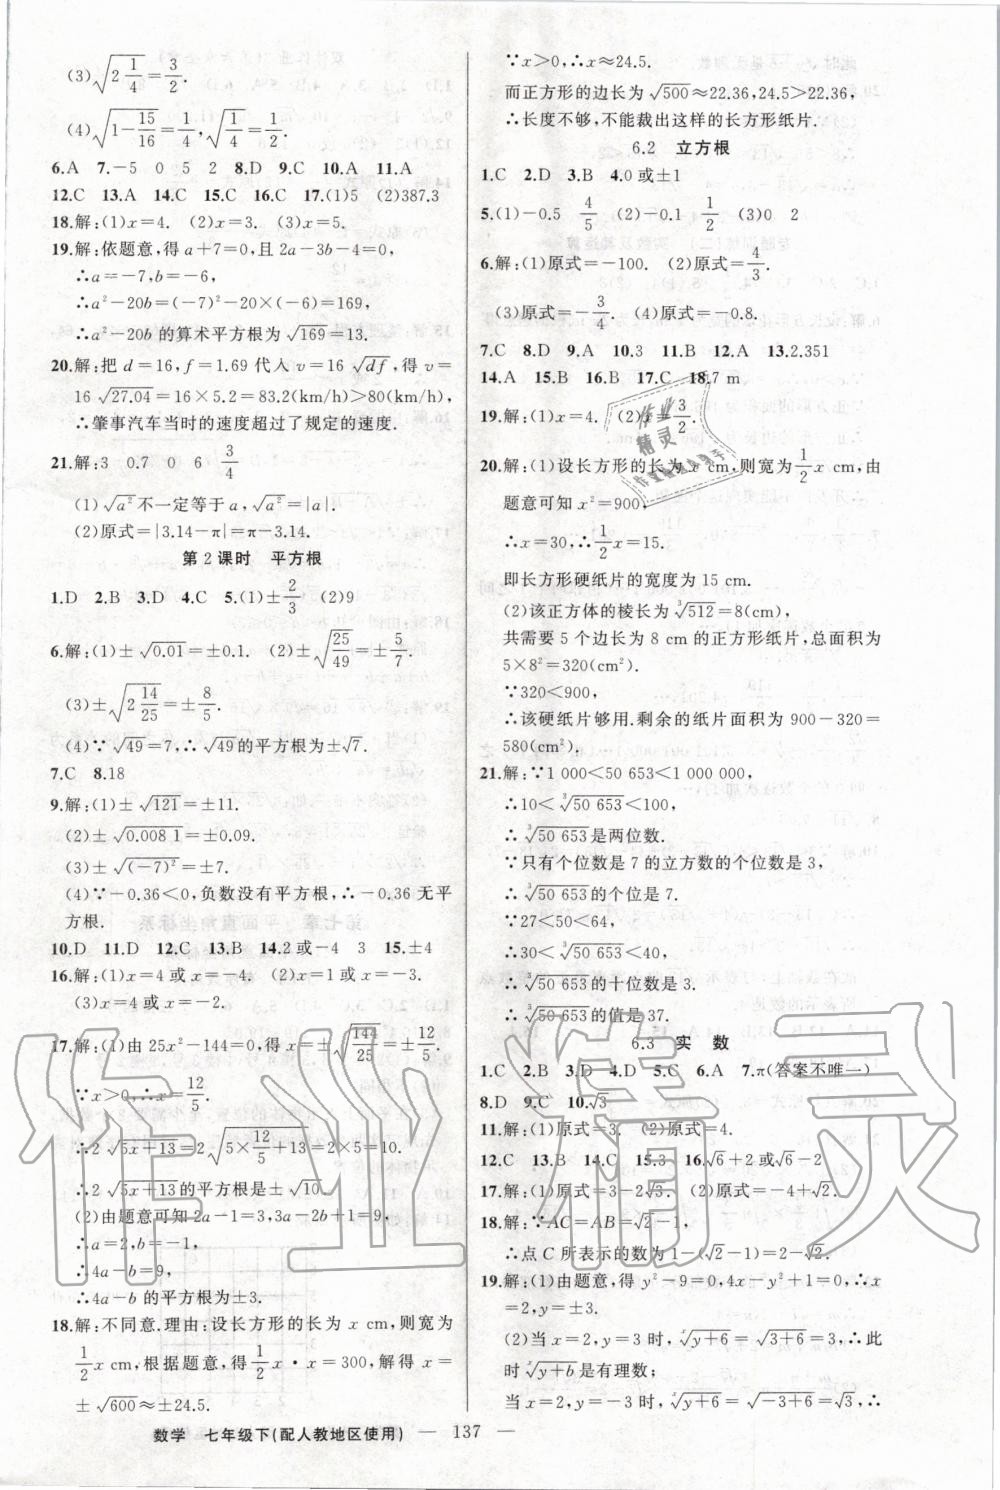 (3)√(2 1/4)=3/2.
(4)√(1-15/16)=1/4,√(1/4)=1/2.
6.A 7.-5 0 5 2 8.D 9.C 10.A 11.A
12.C 13.A 14.C 15.C 16.C 17.(1)5 (2)387.3
18.解:(1)x=4. (2)x=3. (3)x=5.
19.解:依题意,得a+7=0,且2a-3b-4=0,
∴a=-7,b=-6,
∴a²-20b=(-7)²-20×(-6)=169,
∴a²-20b的算术平方根为√169=13.
20.解:把d=16,f=1.69代入v=16√df,得v=
16√27.04=16×5.2=83.2(km/h)>80(km/h).
∴肇事汽车当时的速度超过了规定的速度.
21.解:3 0.7 0 6 3/4
(1)√a²不一定等于a,√a²=|a|.
(2)原式=|3.14-π|=π-3.14.
第2课时 平方根
1.D 2.B 3.D 4.C 5.(1)±2/3 (2)9
6.解:(1)±√0.01=±0.1. (2)±√(25/49)=±5/7.
(3)±√(2 14/25)=±8/5.
(4)∵√49=7,∴√49的平方根为±√7.
7.C 8.18
9.解:(1)±√121=±11.
(2)±√0.008 1=±0.09.
(3)±√(-7)²=±7.
(4)∵-0.36<0,负数没有平方根,∴-0.36无平
方根.
10.D 11.D 12.C 13.B 14.2或-4 3 15.±4
16.解:(1)x=4或x=-4. (2)x=1或x=-3.
(3)x=4或x=-2.
17.解:(1)由25x²-144=0,得x=±√(144/25)=±12/5.
∵x>0,∴x=12/5.
∴2√(5x+13)=2√(5×12/5+13)=2×5=10.
∴2√(5x+13)的平方根是±√10.
(2)由题意可知2a-1=3,3a-2b+1=9,
∴a=2,b=-1,
∴4a-b=9,
∴4a-b的平方根为±3.
18.解:不同意.理由:设长方形的长为x cm,则宽为
1/2x cm,根据题意,得1/2x·x=300,解得x=
±√600≈±24.5.
∵x>0,∴x≈24.5.
而正方形的边长为√500≈22.36,24.5>22.36,
∴长度不够,不能裁出这样的长方形纸片.
6.2 立方根
1.C 2.D 3.B 4.0或±1
5.(1)-0.5 4/5 (2)-0.1 1/2 (3)0 2
6.解:(1)原式=-100. (2)原式=4/3.
(3)原式=-3/4. (4)原式=-0.8.
7.C 8.D 9.A 10.3 11.B 12.A 13.2.351
14.A 15.B 16.B 17.C 18.7 m
19.解:(1)x=4. (2)x=3/2.
20.解:(1)设长方形的长为x cm,则宽为1/2x cm,由
题意可知x²=900,
∴x=30,∴1/2x=15.
即长方形硬纸片的宽度为15 cm.
(2)该正方体的棱长为∛512=8(cm),
共需要5个边长为8 cm的正方形纸片,总面积为
5×8²=320(cm²).
∵320<900,
∴该硬纸片够用.剩余的纸片面积为900-320=
580(cm²).
21.解:∵1 000<50 653<1 000 000,
∴10<∛50 653<100,
∴∛50 653是两位数.
∵只有个位数是7的立方数的个位数是3,
∴∛50 653的个位是7.
∵27<50<64,
∴30<∛50 653<40,
∴∛50 653的十位数是3.
∴∛50 653的值是37.
6.3 实数
1.C 2.B 3.D 4.D 5.C 6.A 7.π(答案不唯一)
8.D 9.C 10.√3
11.解:(1)原式=3. (2)原式=4.
12.C 13.B 14.C 15.3 16.√6+2或√6-2
17.解:(1)原式=-2√3. (2)原式=-4+√2.
18.解:∵AC=AB=√2-1,
∴点C所表示的数为1-(√2-1)=2-√2.
19.解:(1)由题意,得y²-9=0,4x-y²+1=0,∴x
=2,y=±3.
(2)当x=2,y=3时,√(y+6)=√(3+6)=3,∴此
时√(y+b)是有理数;
当x=2,y=-3时,√(y+6)=√(-3+6)=√3,
数学 七年级下(配人教地区使用) — 137 —
作业精灵
作业
精灵